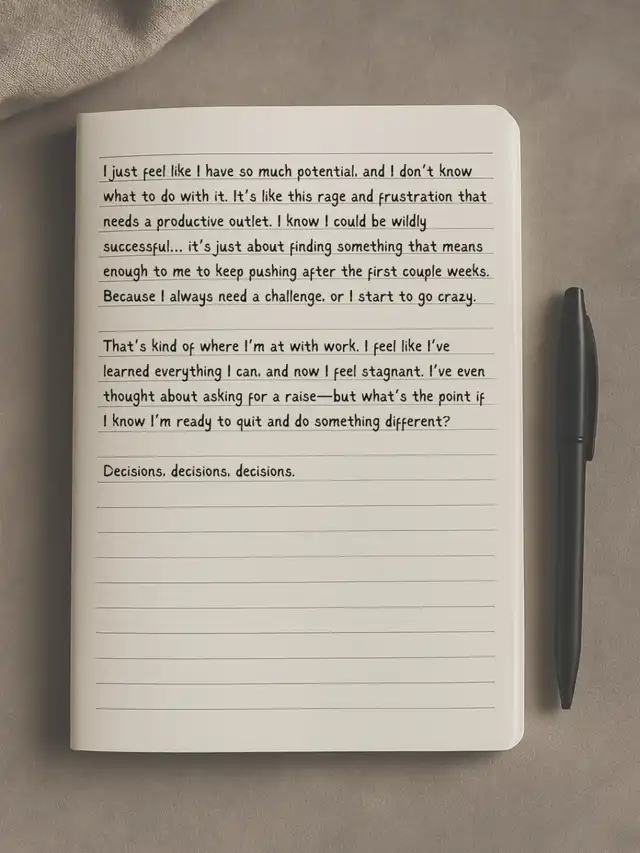 I just feel like I have so much potential, and I don't know
what to do with it. It's like this rage and frustration that
needs a productive outlet. I know I could be wildly
successful... it's just about finding something that means
enough to me to keep pushing after the first couple weeks.
Because I always need a challenge, or I start to go crazy.
That's kind of where I'm at with work. I feel like I've
learned everything I can, and now I feel stagnant. I've even
thought about asking for a raise—but what's the point if
I know I'm ready to quit and do something different?
Decisions, decisions, decisions.